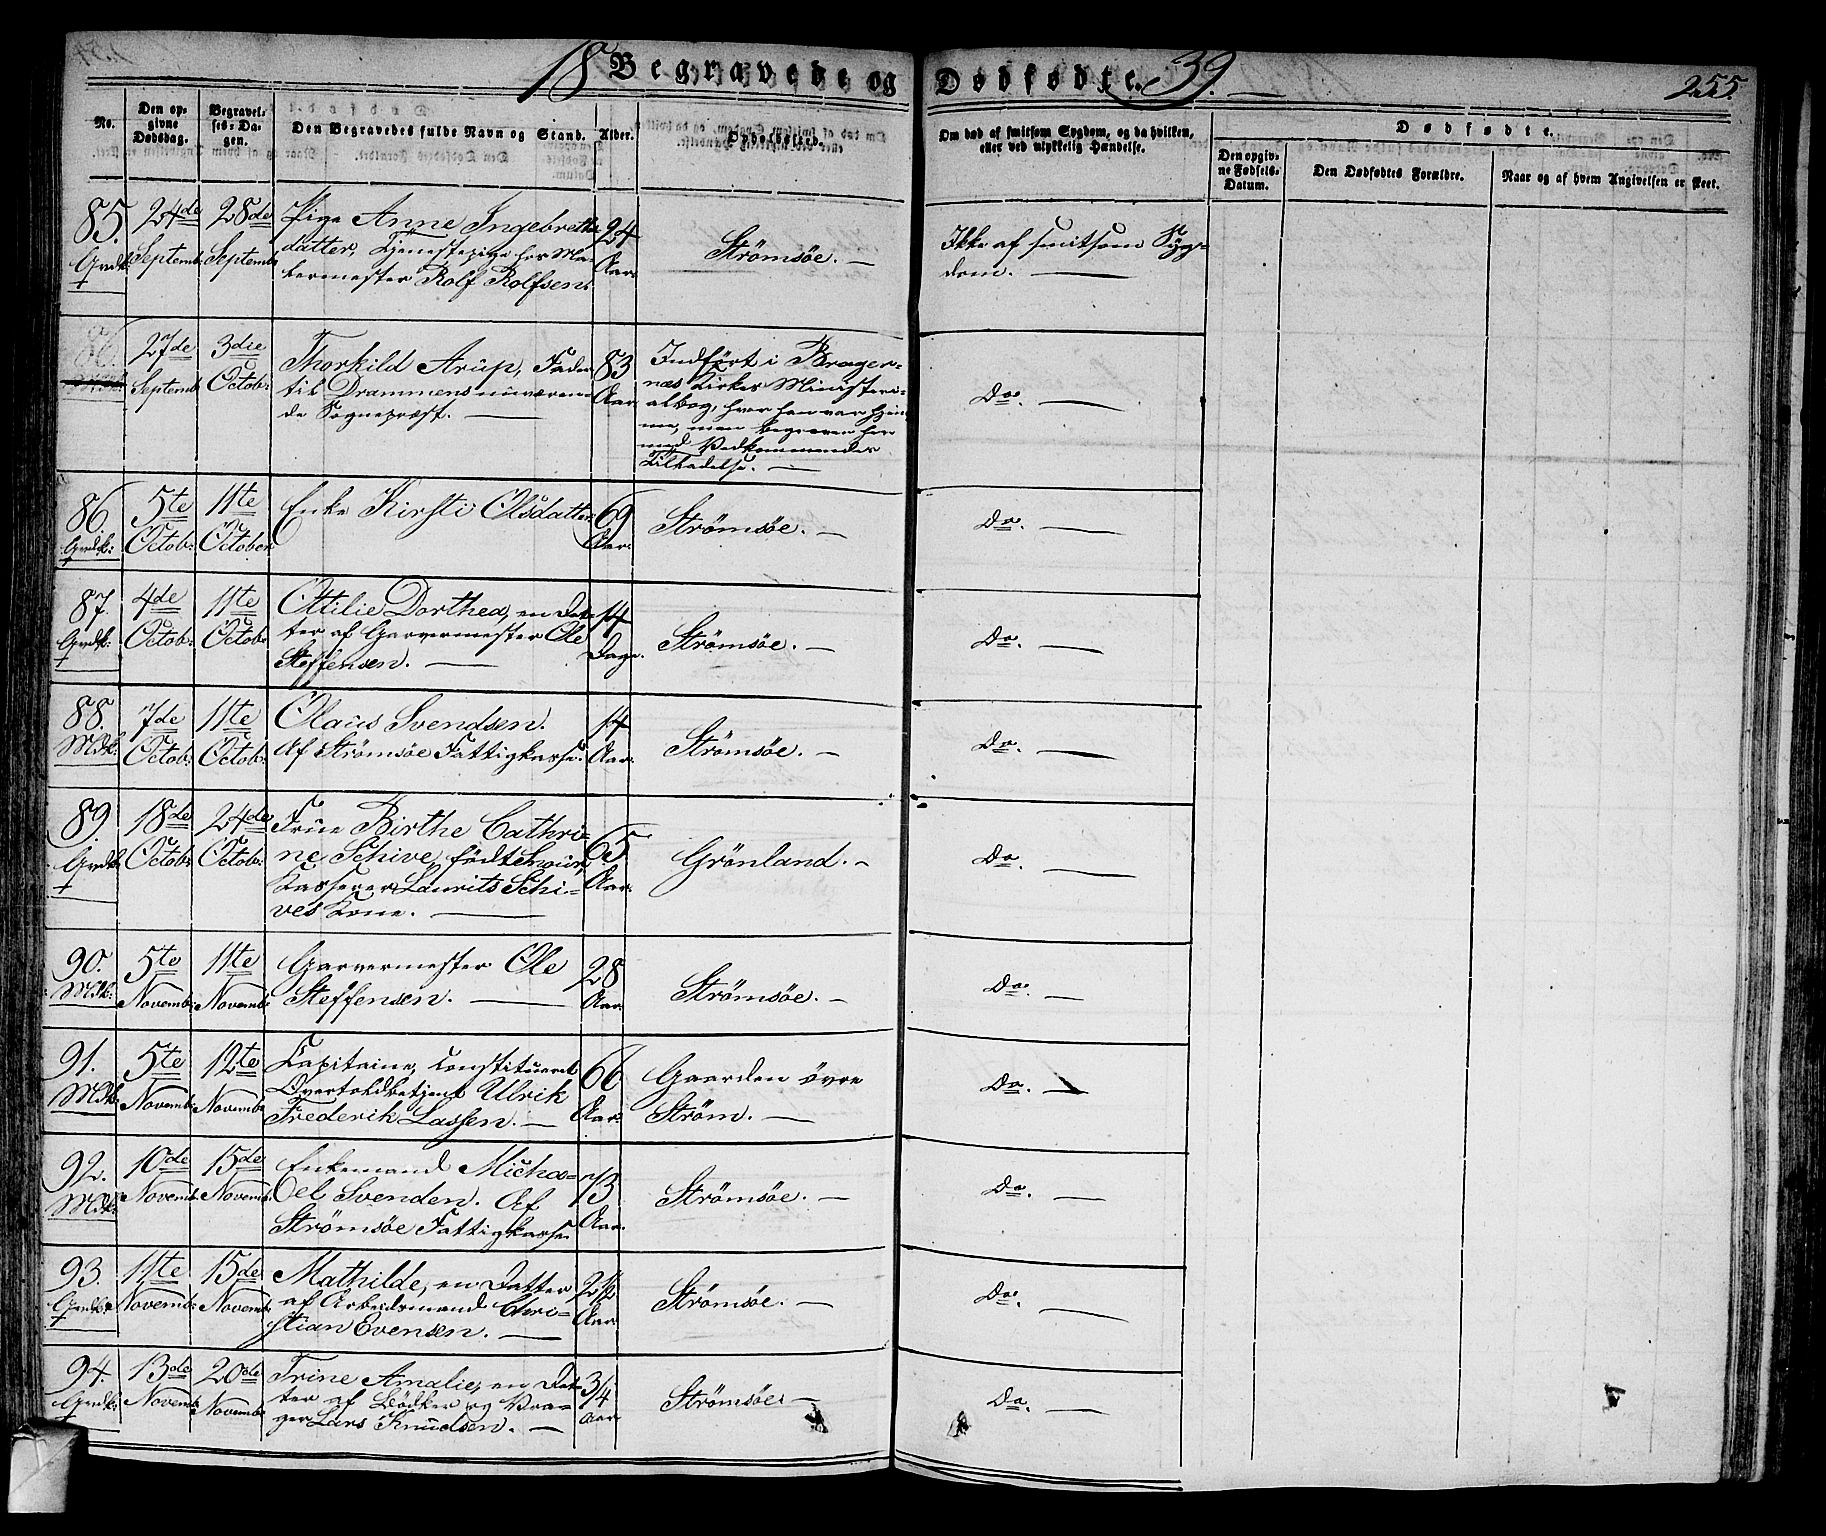 18 Begravede og Dødfødte. 39.
255.
No.
Den op-
givne
Dødsdag.
Begravel-
ses-Da-
gen.
Den Begravedes fulde Navn og Stand.
Alder.
Opholdssted.
Om død af smitsom Sygdom, og da hvilken,
eller ved ulykkelig Hændelse.
Dødfødte.
Den opgiv-
ne Fødsels-
Datum.
Den Dødfødtes Forældre.
Naar og af hvem Angivelsen er skeet.
85.
Qvdk:
24de
Septemb:
28de
Septemb:
Pige Anne Ingebreths-
datter, Tjenestepige hos Ma-
lermester Rolf Rolfsen.
24
Aar.
Strömsöe. —
Ikke af smitsom Syg-
dom. —
27de
Septemb:
3die
Octob:
Thorkild Arup, Fader
til Drammens nuværen-
de Sognepræst. —
83
Aar.
Indført i Brager-
næs Kirkes Ministeri-
albog, hvor han var hjem-
me, men begraven her
med Vedkommendes
Tilladelse. —
Do. —
86.
Qvdk:
5te
Octob:
11te
October.
Enke Kirsti Olsdatter.
69
Aar.
Strömsöe. —
Do. —
87.
Qvdk:
4de
Octob:
11te
Octob:
Ottilie Dorthea, en Dat-
ter af Garvermester Ole
Steffensen. —
14
Dage.
Strömsöe. —
Do. —
88.
Mdk:
7de
Octob:
11te
Octob:
Olaus Svendsen.
Af Strömsöe Fattigkasse.
14
Aar.
Strömsöe. —
Do. —
89.
Qvdk:
18de
Octob:
24de
Octob:
Frue Birthe Cathri-
ne Schive, født
Kasserer Laurits Schi-
ves Kone. —
65
Aar.
Grönland. —
Do. —
90.
Mdk:
5te
Novemb:
11te
Novemb:
Garvermester Ole
Steffensen. —
28
Aar.
Strömsöe. —
Do. —
91.
Mdk:
5te
Novemb:
12te
Novemb:
Capitaine, constitueret
Overtoldbetjent Ulrik
Frederik Lassen. —
66
Aar.
Gaarden övre
Ström. —
Do. —
92.
Mdk:
10de
Novemb:
15de
Novemb:
Enkemand Micha-
el Svenden. Af
Strömsöe Fattigkasse
73
Aar.
Strömsöe. —
Do. —
93.
Qvdk:
11te
Novemb:
15de
Novemb:
Mathilde, en Datter
af Arbeidsmand Chri-
stian Evensen. —
2 1/2
Aar.
Strömsöe. —
Do. —
94.
Qvdk:
13de
Novemb:
20de
Novemb:
Trine Amalie, en Dat-
ter af Bödker og Vra-
ger Lars Knudsen. —
3/4
Aar.
Strömsöe. —
Do. —